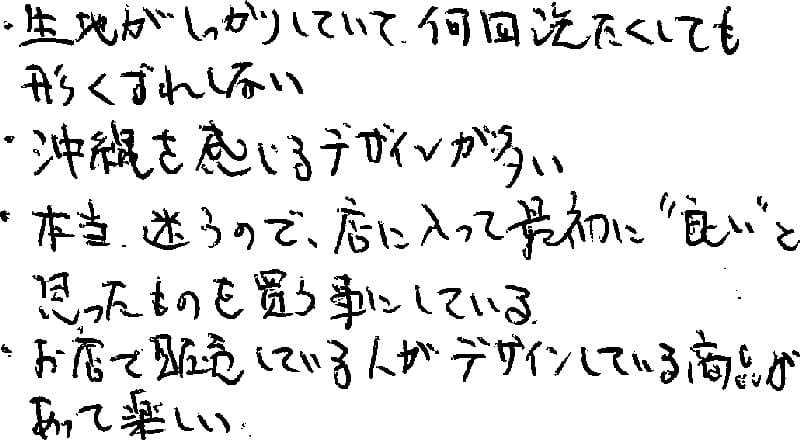 ・生地がしっかりしていて、何回洗たくしても
形くずれしない
・沖縄を感じるデザインが多い
・本当、迷うので、店に入って最初に"良い"と
思ったものを買う事にしている。
・お店で販売している人がデザインしている商品が
あって楽しい。